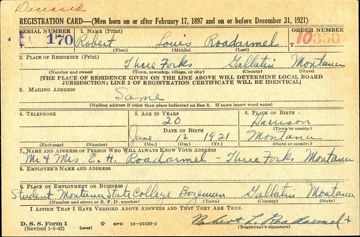 Deceased
REGISTRATION CARD—(Men born on or after February 17, 1897 and on or before December 31, 1921)
SERIAL NUMBER 1. NAME (Print) ORDER NUMBER
170 Robert Louis Roadarmel 10,350
(First) (Middle) (Last)
2. PLACE OF RESIDENCE (Print)
Three Forks Gallatin Montana
(Number and street) (Town, township, village, or city) (County) (State)
[THE PLACE OF RESIDENCE GIVEN ON THE LINE ABOVE WILL DETERMINE LOCAL BOARD
JURISDICTION; LINE 2 OF REGISTRATION CERTIFICATE WILL BE IDENTICAL]
3. MAILING ADDRESS
Same
[Mailing address if other than place indicated on line 2. If same insert word same]
4. TELEPHONE 5. AGE IN YEARS 6. PLACE OF BIRTH
20 Harrison
DATE OF BIRTH (Town or county)
June 12 1921 Montana
(Exchange) (Number) (Mo.) (Day) (Yr.) (State or country)
7. NAME AND ADDRESS OF PERSON WHO WILL ALWAYS KNOW YOUR ADDRESS
Mr & Mrs E. H. Roadarmel - Three Forks Montana
8. EMPLOYER'S NAME AND ADDRESS
9. PLACE OF EMPLOYMENT OR BUSINESS
Student Montana State College Bozeman Gallatin Montana
(Number and street or R. F. D. number) (Town) (County) (State)
I AFFIRM THAT I HAVE VERIFIED ABOVE ANSWERS AND THAT THEY ARE TRUE.
D. S. S. Form 1 Robert L Roadarmel
(Revised 1-1-42) (over) (Registrant's signature)